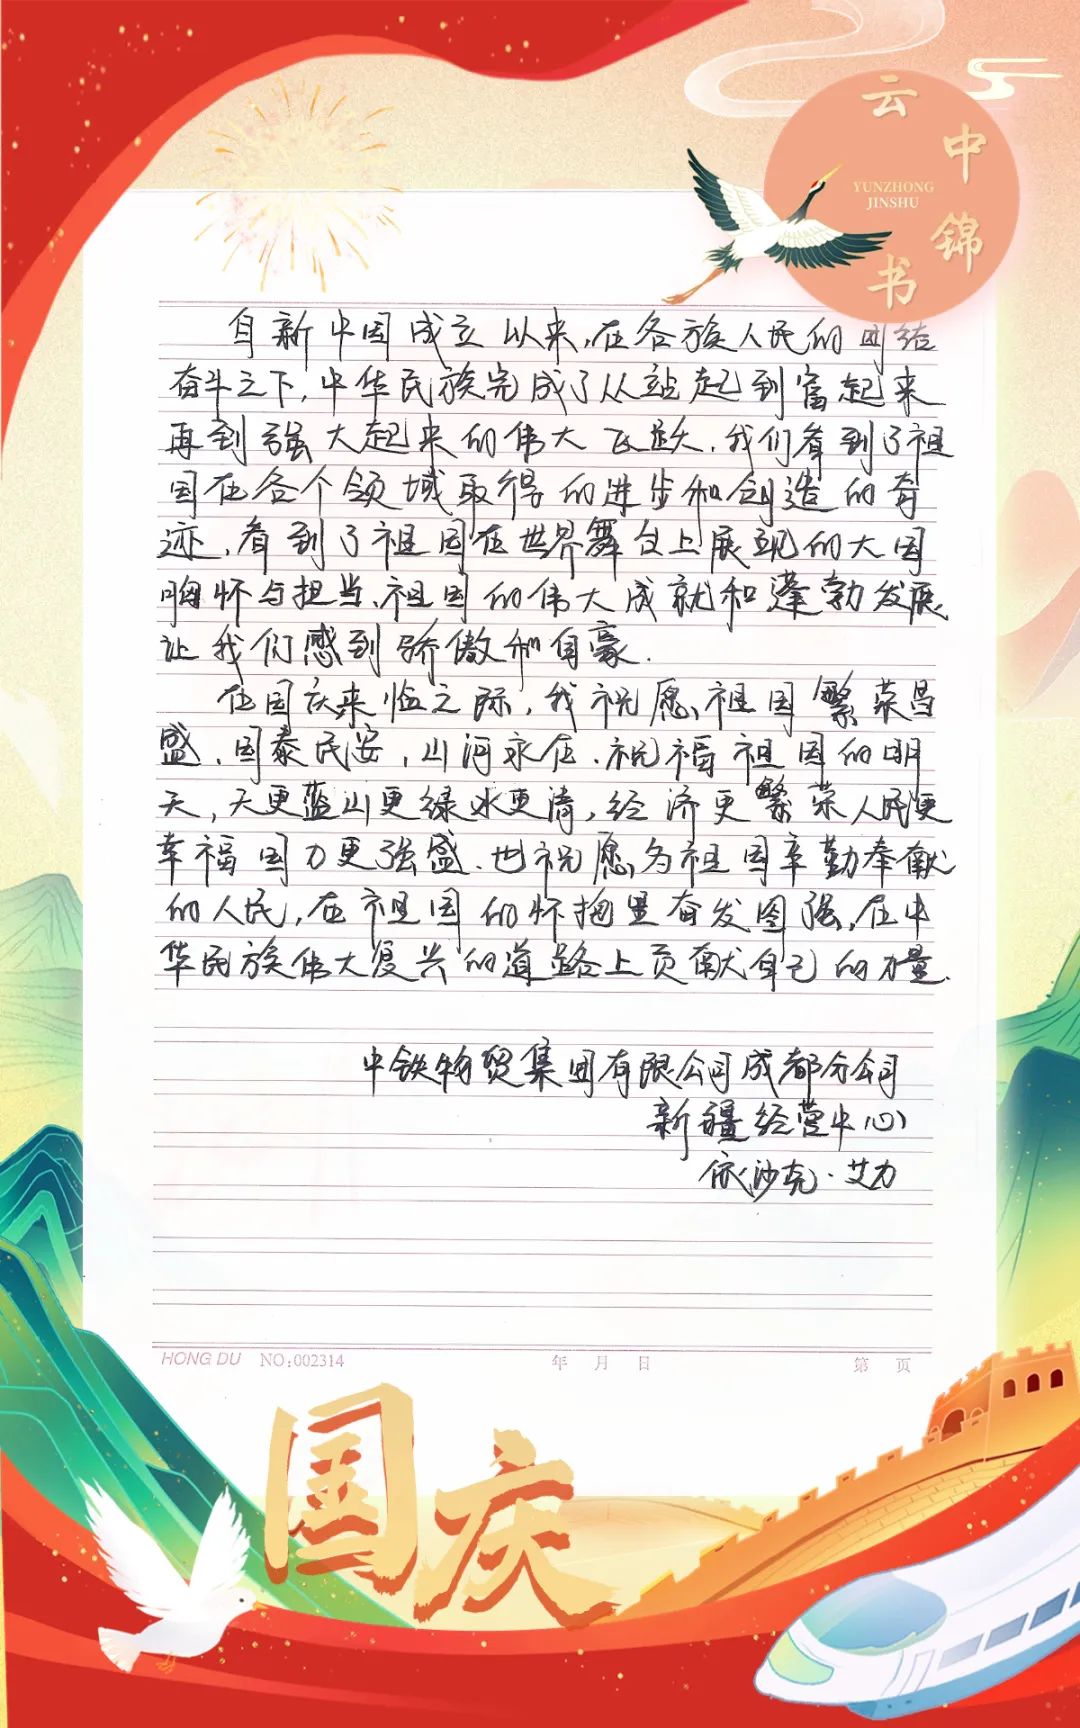 云中锦书
YUNZHONG
JINSHU
自新中国成立以来,在各族人民的团结
奋斗之下,中华民族完成了从站起到富起来
再到强大起来的伟大飞跃.我们看到了祖
国在各个领域取得的进步和创造的奇
迹,看到了祖国在世界舞台上展现的大国
胸怀与担当,祖国的伟大成就和蓬勃发展
让我们感到骄傲和自豪.
在国庆来临之际,我祝愿祖国繁荣昌
盛,国泰民安,山河永在.祝福祖国的明
天,天更蓝山更绿水更清,经济更繁荣人民更
幸福国力更强盛.也祝愿为祖国辛勤奉献
的人民,在祖国的怀抱里奋发图强,在中
华民族伟大复兴的道路上贡献自己的力量.
中铁物贸集团有限公司成都分公司
新疆经营中心
依沙克·艾力
HONG DU NO:002314 年 月 日 第 页
国庆